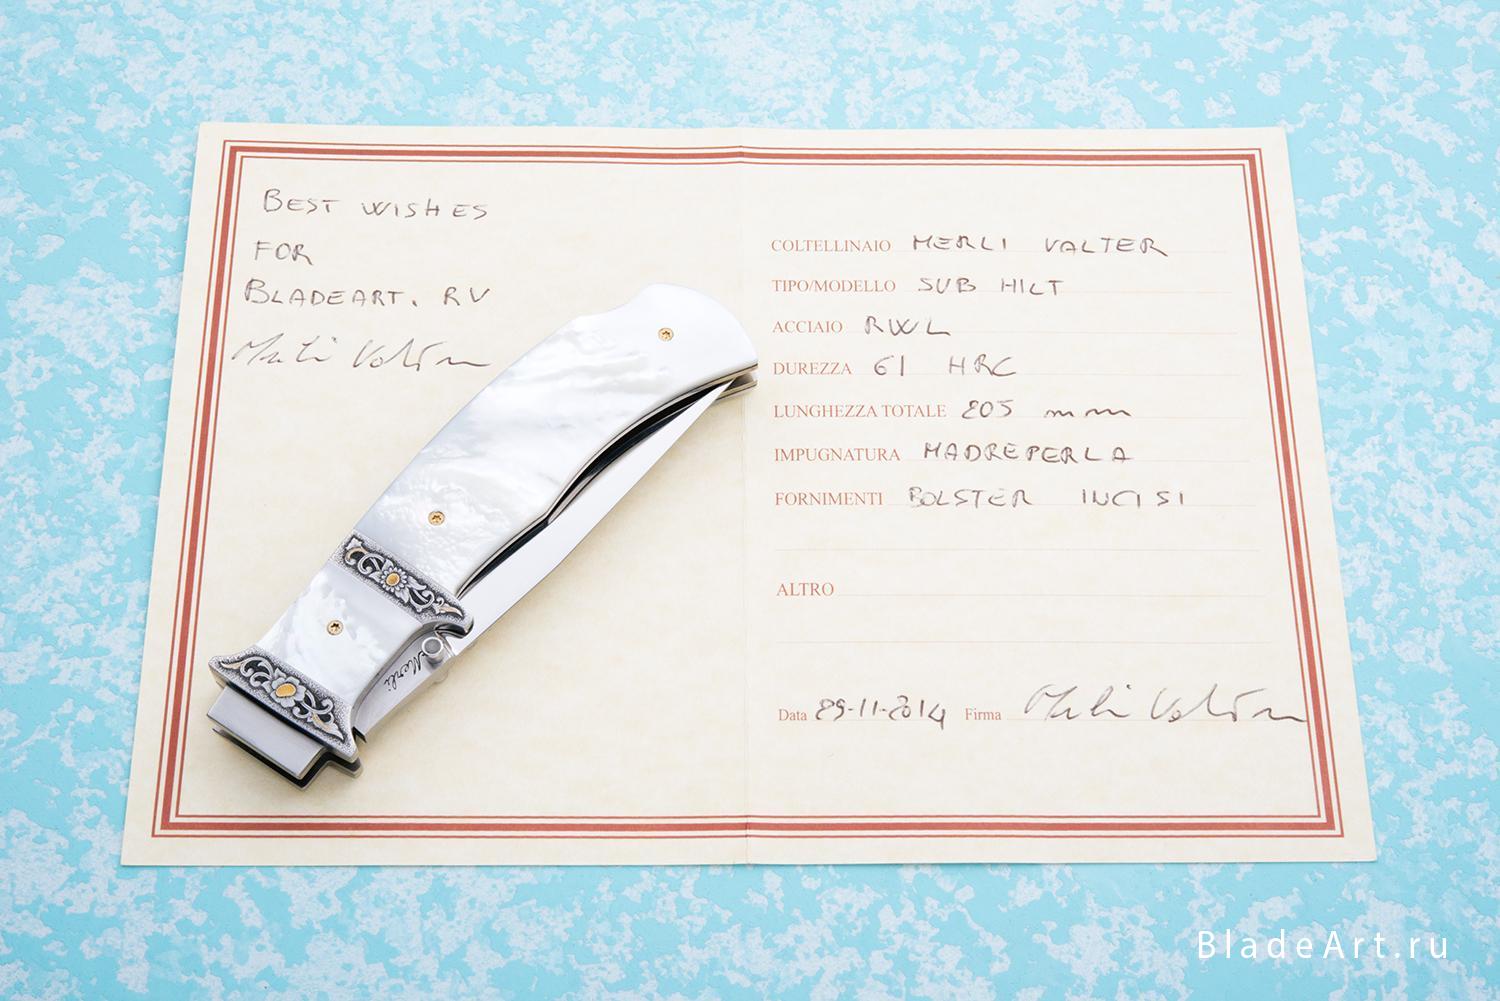 BEST WISHES
FOR
BLADEART. RV
Merli Valter
COLTELLINAIO MERLI VALTER
TIPO/MODELLO SUB HILT
ACCIAIO RWL
DUREZZA 61 HRC
LUNGHEZZA TOTALE 205 mm
IMPUGNATURA MADREPERLA
FORNIMENTI BOLSTER INCISI
ALTRO
Data 29-11-2014 Firma Merli Valter
Merli
BladeArt.ru